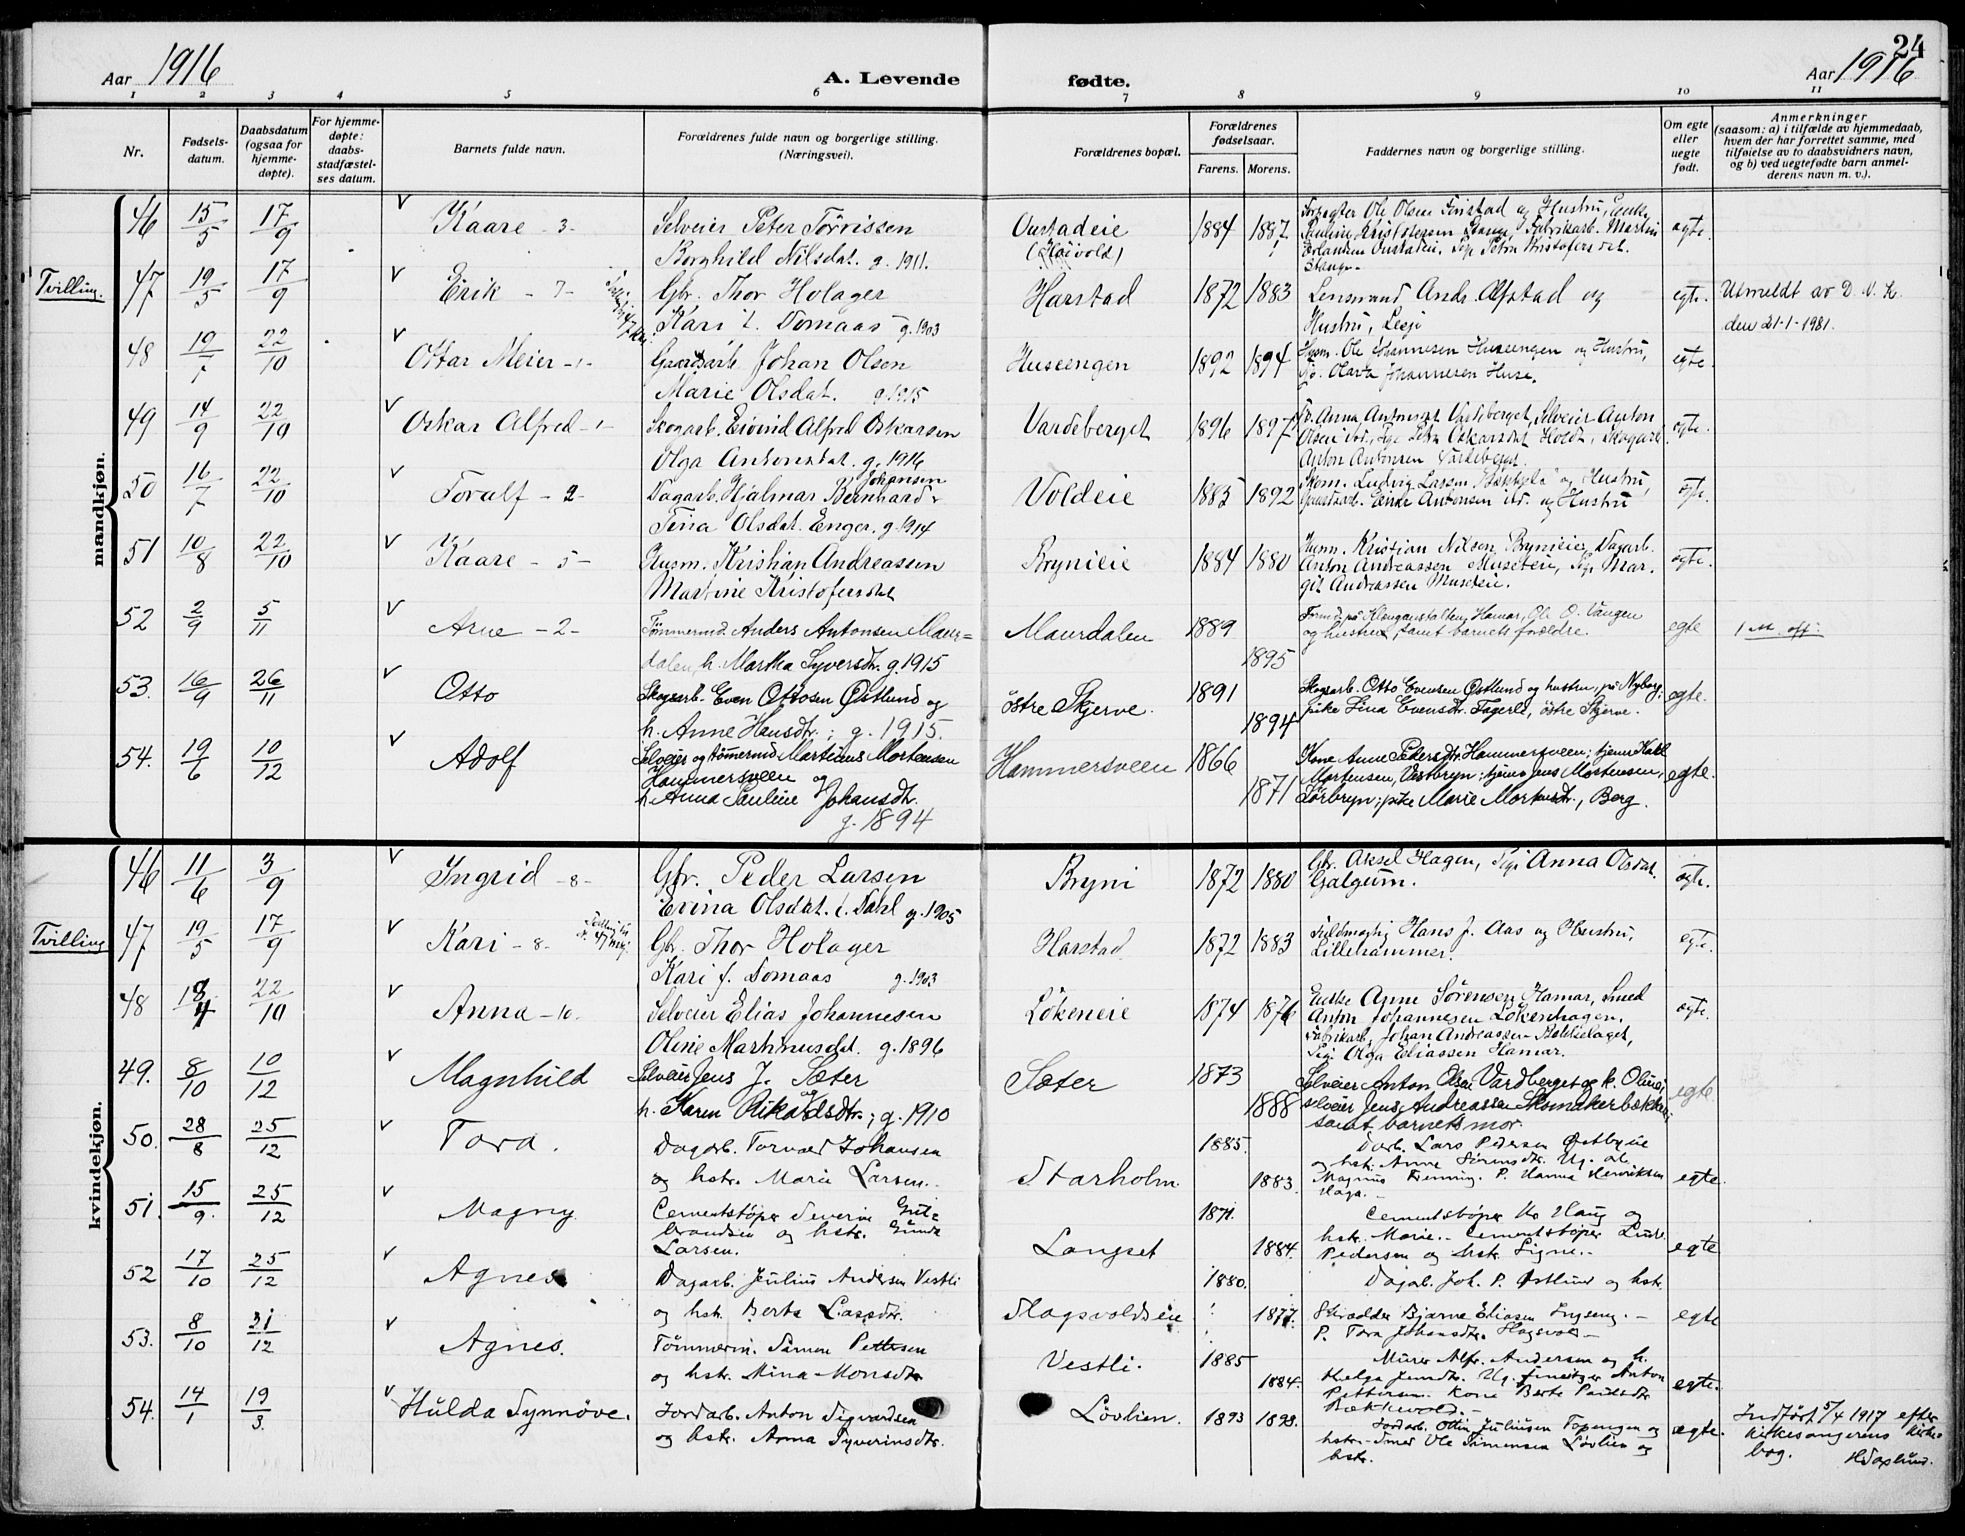 24
Aar 1916 A. Levende
fødte. Aar 1916
1 2 3 4 5 6 7 8 9 10 11
Nr.
Fødsels-
datum.
Daabsdatum
(ogsaa for
hjemme-
døpte).
For hjemme-
døpte:
daabs-
stadfæstel-
ses datum.
Barnets fulde navn.
Forældrenes fulde navn og borgerlige stilling.
(Næringsvei).
Forældrenes bopæl.
Forældrenes
fødselsaar.
Farens. Morens.
Faddernes navn og borgerlige stilling.
Om egte
eller
uegte
født.
Anmerkninger
(saasom: a) i tilfælde av hjemmedaab,
hvem der har forrettet samme, med
tilføielse av to daabsvidners navn,
og b) ved uegtefødte barn anmel-
derens navn m. v.).
mandkjøn.
46 15/5 17/9 Kaare - 3 - Selveier Peter Torvissen
Borghild Nilsdat. g. 1911.
Oustadeie 1884 1887 egte.
Tvilling. 47 19/5 17/9 Erik - 7 - Gbr. Thor Holager
Kari f. Domaas g. 1903
Harstad 1872 1883 Lensmand Andr. Alfstad og
Hustru, egte. Utmeldt av D. N. K.
den 21-1-1981.
48 22/10 Ottar Meier - 1 - Gaardsarb. Johan Olsen
Marie Olsdat. g. 1915
Huseengen 1892 1894 Husm. Ole Johannesen Huseengen og Hustru,
Olava Johannesen Huse. egte.
49 14/9 22/10 Oskar Alfred - 1 - Skogarb. Eivind Alfred Oskarsen
Olga Antonsdat. g. 1916
Vardeberget 1896 1897 Anna Antonsdat Vardeberget, Selveier Anton
Olsen ibd., Pige Petra Oskarsdat Holdt, Skogarb.
Anton Antonsen Vardeberget. egte.
50 16/7 22/10 Toralf - 2 - Dagarb. Hjalmar Bernhard Johansen
Tina Olsdat. Enger. g. 1914
Voldeie 1885 1892 Skom. Ludvig Larsen og Hustru,
Antonsen ibd. og Hustru egte.
51 10/8 22/10 Kaare - 5 - Husm. Kristian Andreassen
Martine Kristofersdat
Brynieie 1884 1880 Husm. Kristian Nilsen, Brynieie, Dagarb.
Anton Andreassen Museteie, Pige Mar-
git Andreassen Museteie. egte.
52 2/9 5/11 Arne - 2 - Tömmermd. Anders Antonsen Maur=
dalen, h. Martha Syversdtr. g. 1915
Maurdalen 1889 1895 Ole O. Vangen
og hustru, samt barnets forældre. egte 1 M. off.
53. 16/9 26/11 Otto Skogarb. Even Ottosen Østlund og
h. Anne Hansdtr.; g. 1915.
östre Skjerve. 1891 1894 Skogsarb. Otto Evensen Østlund og hustru, pr Nyborg;
pike Lina Evensdtr. Fagerli, östre Skjerve. egte.
54. 19/6 10/12 Adolf Selveier og tömmermd Martinus Mortensen
Hammersveen og
h. Anna Pauline Johansdtr.
g. 1894
Hammersveen 1866 1871 Kone Anne Pedersdtr. Hammersveen; tjener Karl
Mortensen, Vestbryn; tjener Jens Mortensen,
Sörbryn; pike Marie Mortensdtr., Berg. egte.
kvindekjøn.
46 11/6 3/9 Ingrid - 8 - Gbr. Peder Larsen
Evina Olsdat. f. Dahl g. 1905
Bryni 1872 1880 Gbr. Aksel Hagen, Pige Anna Olsdat.
Galgum. egte.
Tvilling 47 19/5 17/9 Kari - 8 - Gbr. Thor Holager
Kari f. Domaas g. 1903
Harstad 1872 1883 Fuldmægtig Hans J. Aas og Hustru,
Lillehammer. egte.
48 22/10 Anna - 10 - Selveier Elias Johannesen
Oline Martinusdat. g. 1896
Lökeneie 1874 1876 Enke Anne Sörensen Hamar, Smed
Anton Johannesen Lökenhagen,
Fabrikarb. Johan Andreassen
Pige Olga Eliassen Hamar. egte.
49. 8/10 10/12 Magnhild Selveier Jens J. Sæter
h. Karen Rikardsdtr.; g. 1910
Sæter 1873 1888 Selveier Anton Olsen Vardberget og h. Oline;
selveier Jens Andreassen Skomakerbækken;
samt barnets mor. egte
50. 28/8 25/12 Tora. Dagarb. Torvald Johansen
og hstr. Marie Larsen.
Starholm. 1885. 1883. Darb. Lars Pedersen Østbyeie
og hst. Anne Sörensdtr. Ug. arb.
Magnus Fremming. P. Hanna Henriksen
Haga. egte.
51. 15/9. 25/12 Magny Cementstöper Severin Gul-
brandsen og hstr. Gunda
Larsen.
Langset 1871. 1884. Cementstöper Haug og
hstr. Marie. - Cementstöper
Pedersen og hstr Signe. - egte
52 17/10 25/12 Agnes Dagarb. Julius Andersen Vestli
og hstr. Berte Larsdtr.
Slagsvoldseie 1880. 1877. Dagarb. Joh. P. Østlund og hstr.
Skrædder Bjarne Eliasen -
P. Tora Johansdtr. Slagsvold - egte
53. 8/10 31/12 Agnes. Tömmerm. Simen Pettersen
og hstr. Mina Monsdtr
Vestli. 1885 1884. Murer Alfr. Andersen og h.
Helga Ug. Anton
Pettersen. Kone Berte Paulsdtr
Bækkevold. - egte.
54. 14/1 19/3. Hulda Synnöve. Jordarb. Anton Sigvardsen
og hstr. Anna Syverinsdtr.
Lövlien. 1893 1893. Jordarb. Otto Juliusen og
hstr. - Smed Ole Simensen Lövlien og
hstr. ægte. Indfört 5/4 1917 efter
kirkesangerens kirke-
bog.